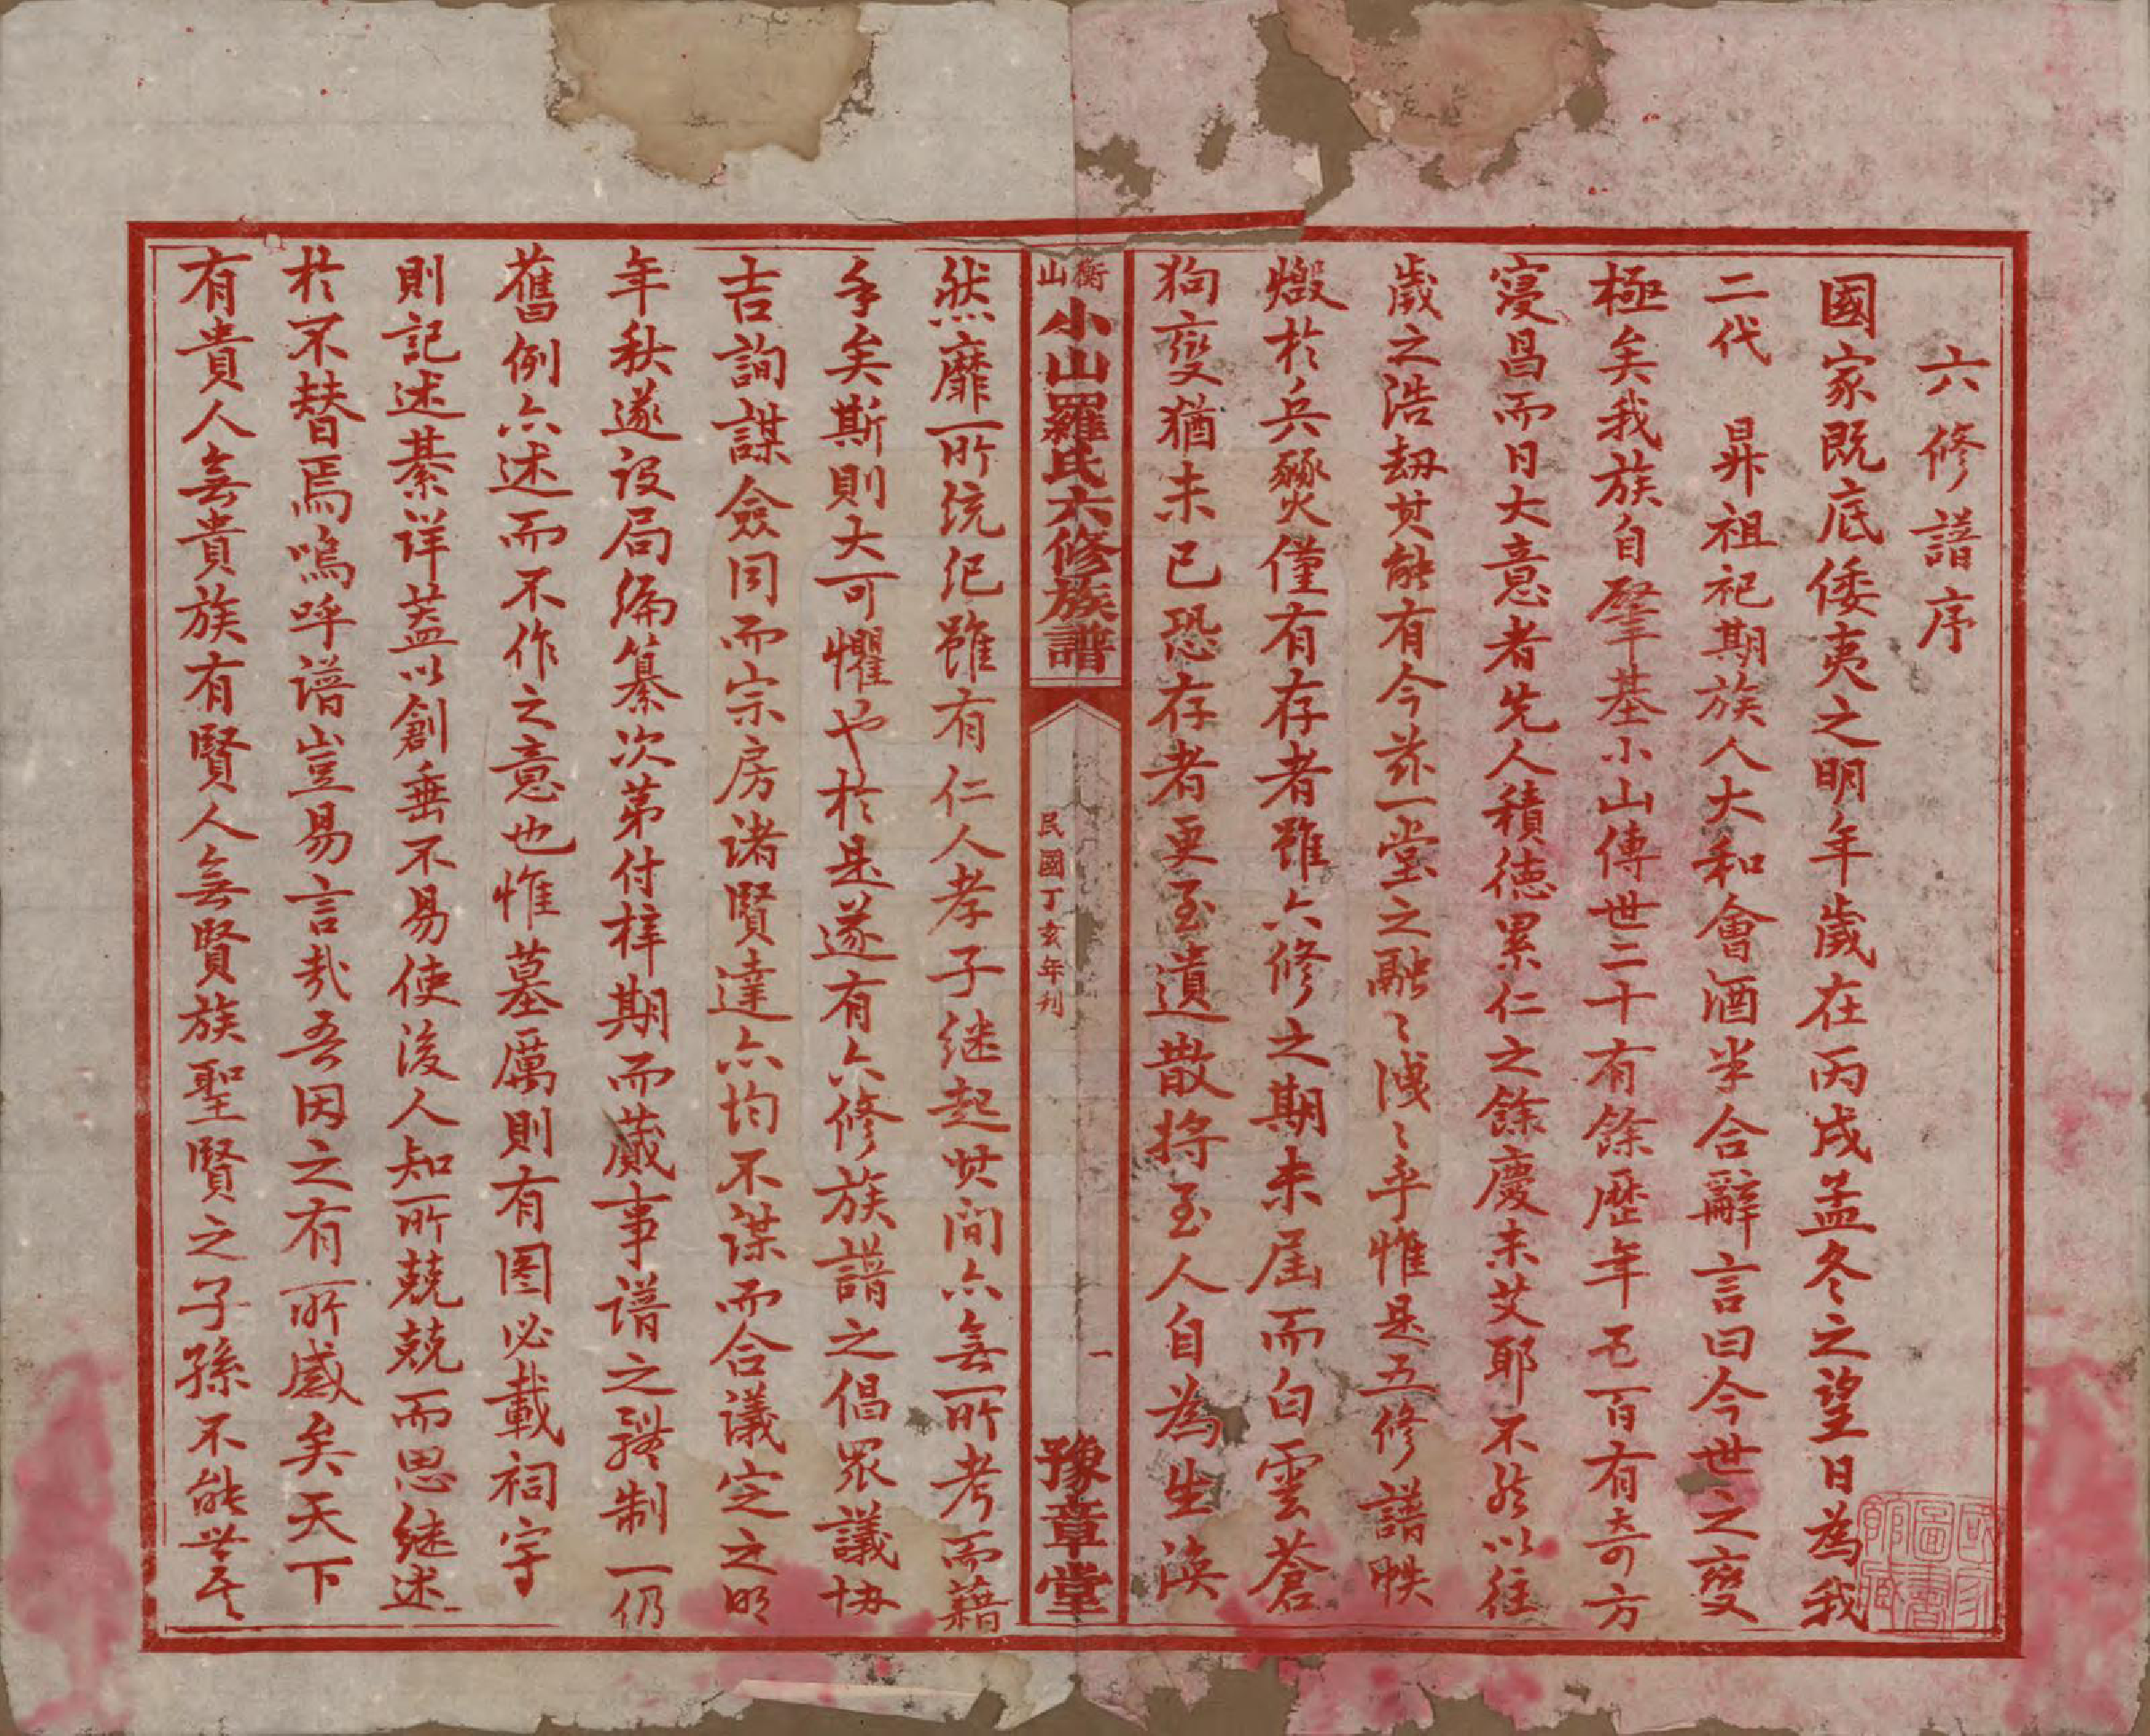 六修譜序
國家既底倭夷之明年歲在丙戌孟冬之望日為我
二代 昇祖祀期族人大和會酒半合辭言曰今世之變
極矣我族自肇基小山傳世二十有餘歷年五百有奇方
寖昌而日大意者先人積德累仁之餘慶未艾耶不然以往
歲之浩劫其能有今茲一堂之融〻洩〻乎惟是五修譜帙
燬於兵燹僅有存者雖六修之期未屆而白雲蒼
狗變猶未已恐存者更至遺散將至人自為生渙
衡山小山羅氏六修族譜
民國丁亥年刊
一
豫章堂
然靡所統紀雖有仁人孝子继起其间亦無所考而藉
手矣斯則大可懼也於是遂有六修族譜之倡眾議协
吉詢謀僉同而宗房諸賢達亦均不谋而合議定之明
年秋遂设局编纂次第付梓期而蕆事谱之體制一仍
舊例亦述而不作之意也惟墓廬則有图必載祠宇
則記述綦详蓋以創垂不易使後人知所兢兢而思继述
於不替焉嗚呼谱豈易言哉吾因之有所感矣天下
有貴人無貴族有賢人無賢族聖賢之子孫不能世其
國家圖書館藏